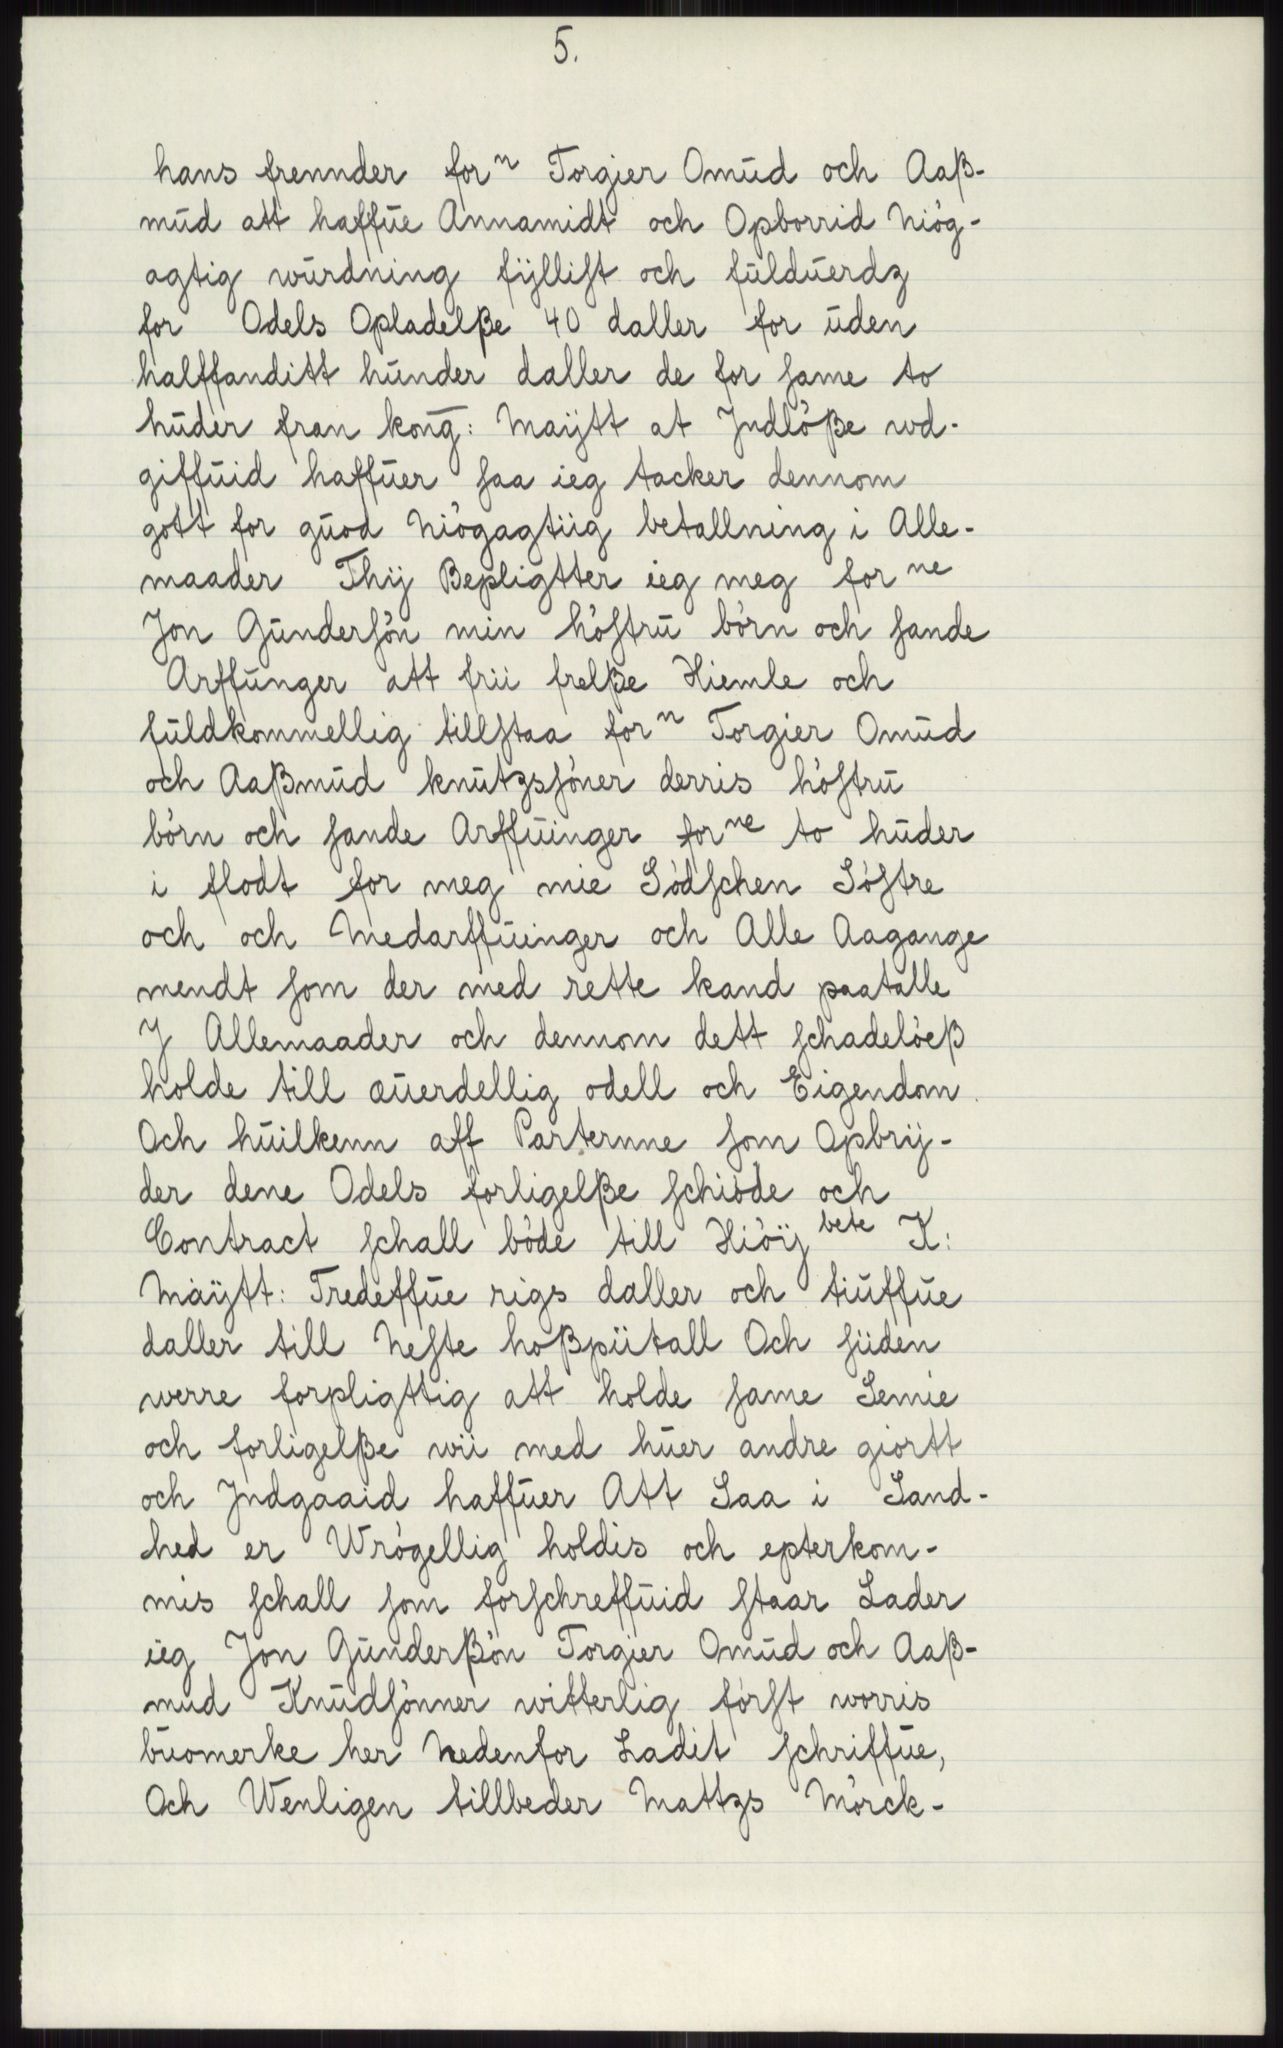 5.
hans frennder for<sup>n</sup> Torgier Omūd och Aaß-
mūd att haffūe Annamidt och Opborrid Niög-
agtig würdning fÿlliſt och fūldūerdz
for Odels Opladelße 40 daller for ūden
halffanditt hūnder daller de for ſame to
hūder fran kong: Maÿtt at Jndlöße wd-
giffūid haffūer ſaa ieg tacker dennom
gott for gūod Niögagtiig betallning i Alle-
maader Thÿ Bepligtter ieg meg for<sup>ne</sup>
Jon Gūnderſön min höſtrū börn och ſande
Arffūnger att frii frelße Hiemle och
fūldkommellig tillſtaa for<sup>n</sup> Torgier Omūd
och Aaßmūd knūtzsſöner derris höſtrū
börn och ſande Arffūinger for<sup>ne</sup> to hūder
i flodt for meg mie Södſchen Söſtre
och och Medarffūinger och Alle Aagange
mendt ſom der med rette kand paatalle
J Allemaader och dennom dett ſchadelöeß
holde till æūerdellig odell och Eigendom.
Och hūilkenn aff Parternne ſom Opbrÿ-
der dene Odels forligelße ſchiöde och
Contract ſchall böde till Hiöÿ<sup>bete</sup> K:
Maÿtt: Tredeffūe rigs daller och tiūffūe
daller till Neſte hoßpiitall Och ſiiden
werre forpligttig att holde ſame Semie
och forligelße wii med hūer andre giortt
och Jndgaaid haffūer Att Saa i Sand-
hed er Wrögellig holdis och epterkom-
mis ſchall ſom forſchreffūid ſtaar Lader
ieg Jon Gūnderßön Torgier Omūd och Aaß-
mud Knūdſönner witterlig förſt worris
būomerke her Nedenfor Ladit ſchriffūe,
Och Wenligen tillbeder Mattzs Mörck-